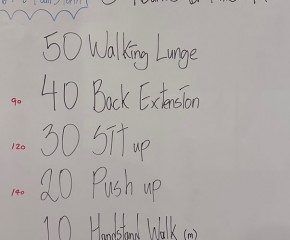 50 Walking Lunge
90 40 Back Extension
120 30 SiT up
140 20 Push up
10 Handstand Walk (m)